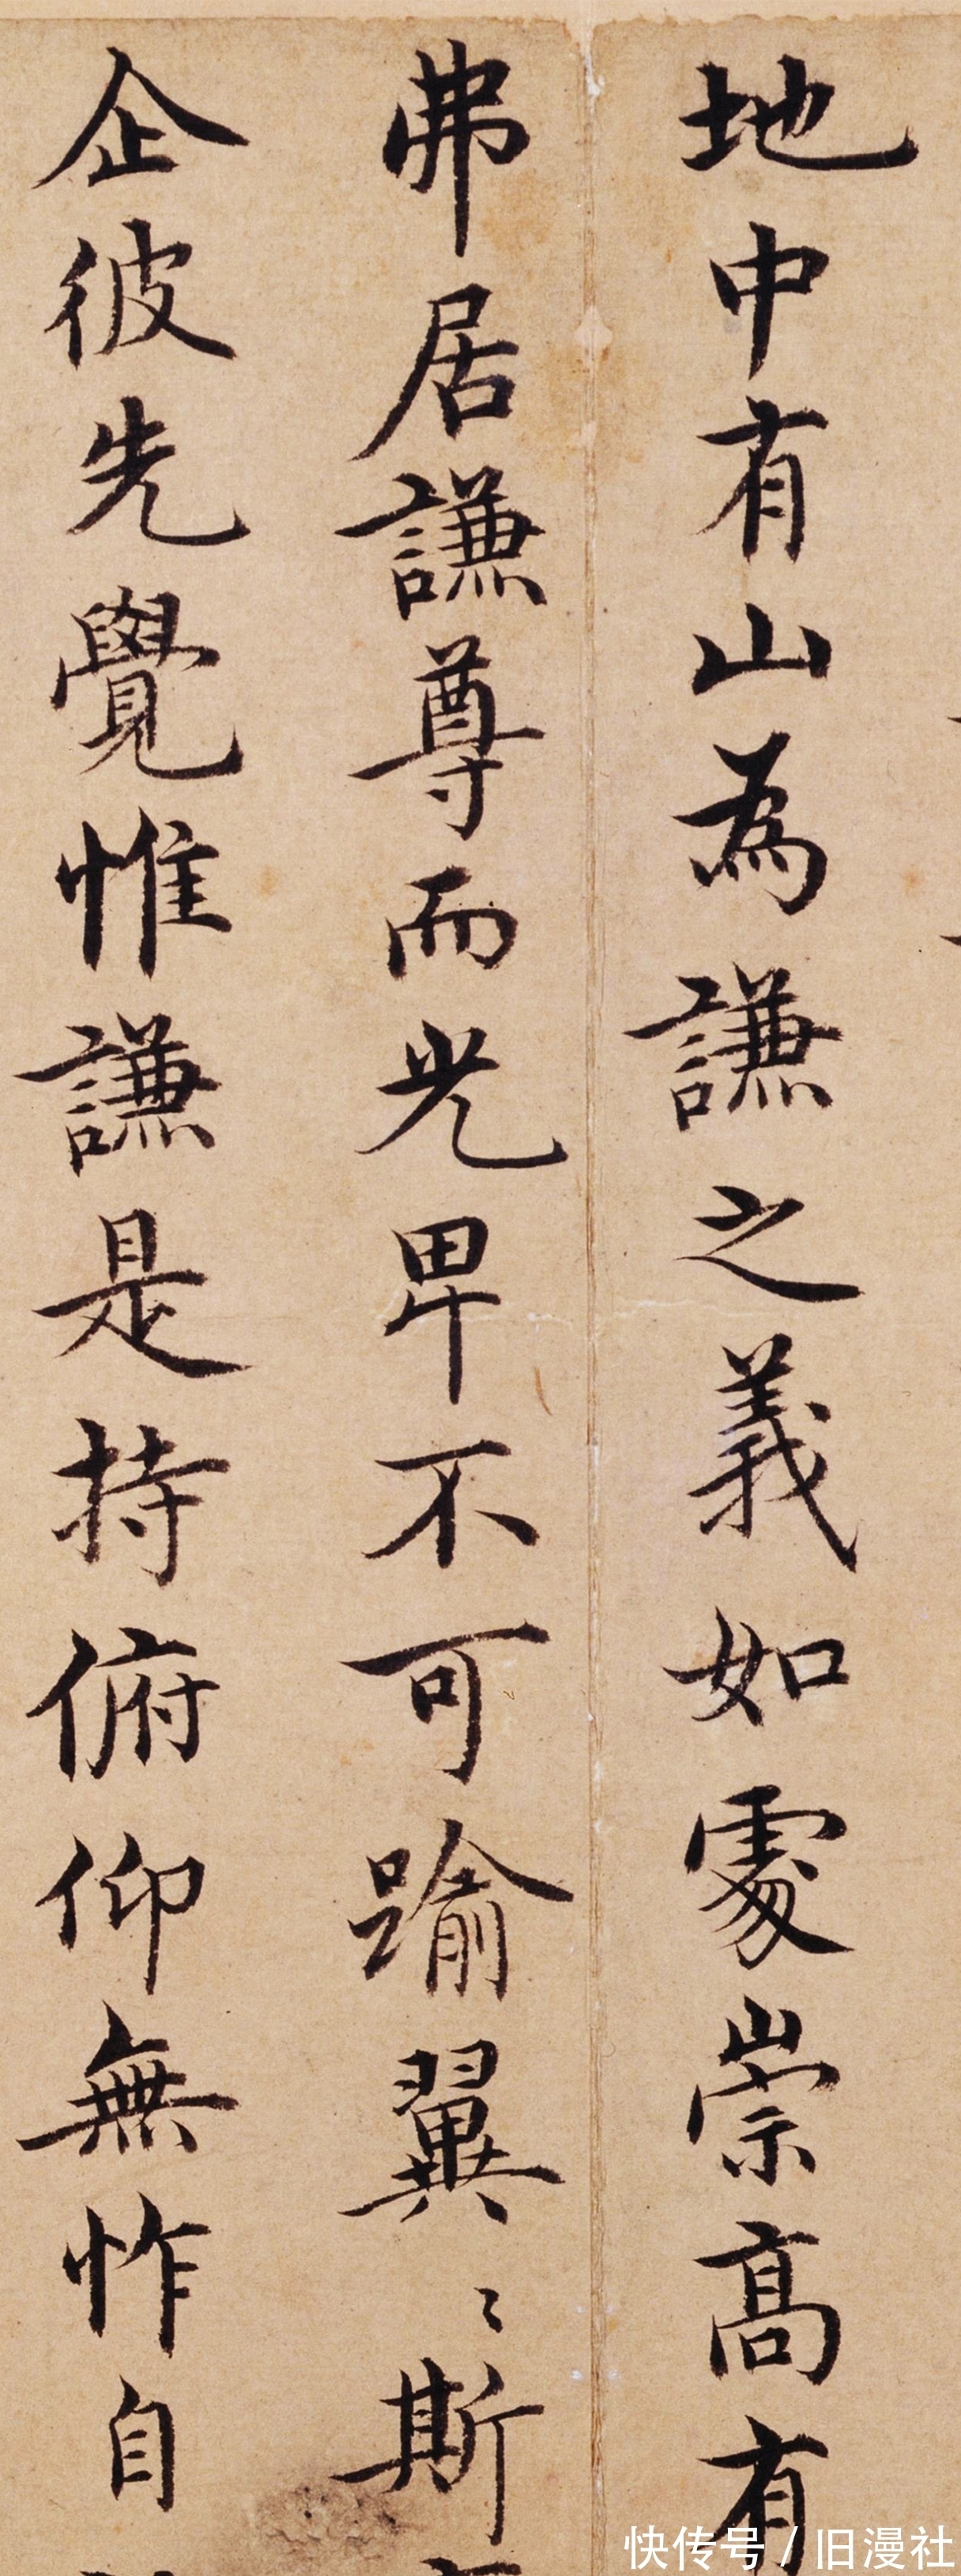 地中有山為謙之義如處崇高有
弗居謙尊而光卑不可踰翼〻斯
企彼先覺惟謙是持俯仰無怍自
快传号/旧漫社